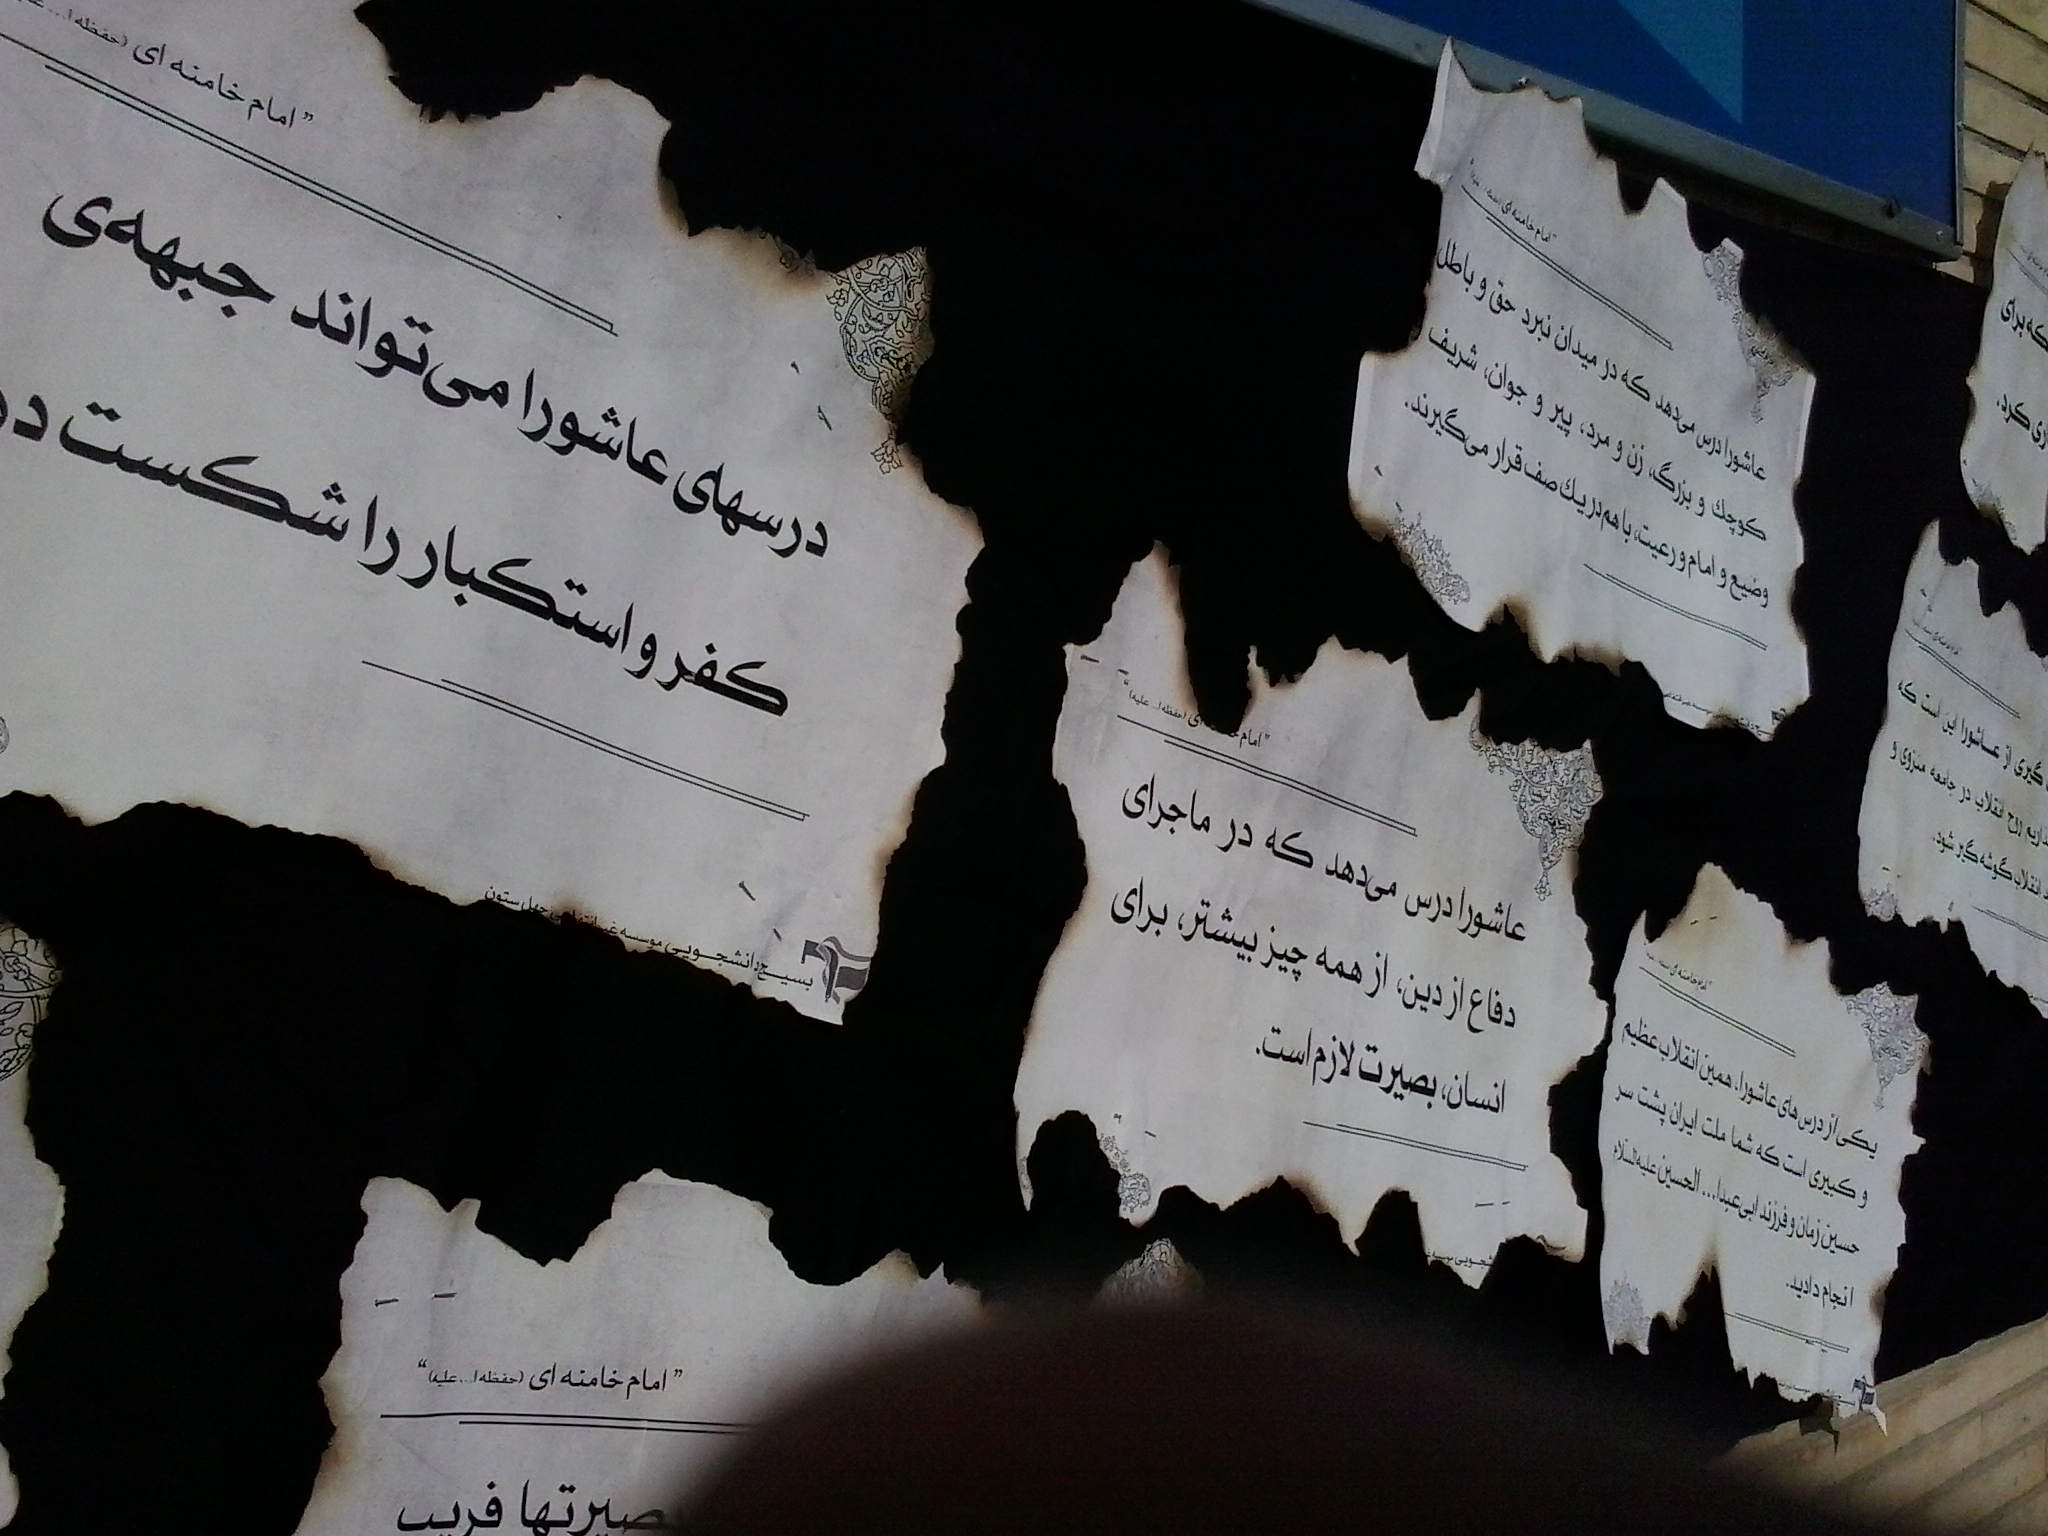 ” امام خامنه ای (حفظه ا... علیه)
درسهای عاشورا می‌تواند جبهه‌ی
کفر و استکبار را شکست
بسیج دانشجویی موسسه غیرانتفاعی چهل ستون
” امام خامنه ای
عاشورا درس می‌دهد که در میدان نبرد حق و باطل
کوچک و بزرگ، زن و مرد، پیر و جوان، شریف
وضیع و امام و رعیت، باهم در یک صف قرار می‌گیرند.
” امام خامنه ای (حفظه ا... علیه) “
عاشورا درس می‌دهد که در ماجرای
دفاع از دین، از همه چیز بیشتر، برای
انسان، بصیرت لازم است.
که برای
کرد.
گیری از عاشورا این است که
روح انقلاب در جامعه منزوی و
انقلاب گوشه گیر شود.
امام خامنه ای
یکی از درس های عاشورا، همین انقلاب عظیم
و کبیری است که شما ملت ایران پشت سر
حسین زمان و فرزند ابی‌عبدا... الحسین علیه‌السلام
انجام دادید.
” امام خامنه ای (حفظه ا... علیه) “
بصیرتها فریب